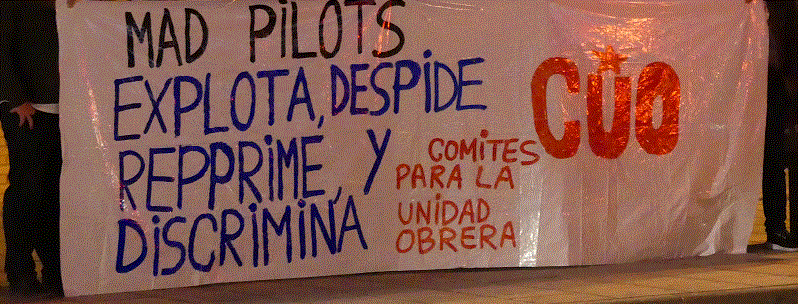 MAD PILOTS
EXPLOTA, DESPIDE
REPPRIME, Y
DISCRIMINA
COMITES
PARA LA
UNIDAD
OBRERA
CUO